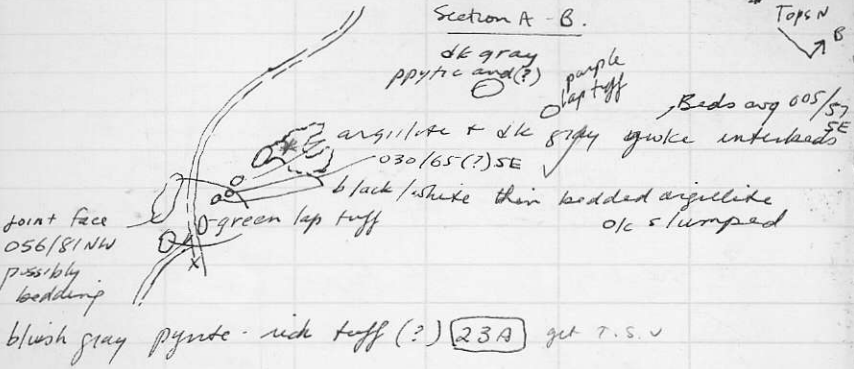 Section A - B.
Tops N
B
dk gray
ppytic and(?)
purple
lap tuff
, Beds avg 005/57
SE
argillite + dk gray gwke interbeds
030/65(?)SE
black/white thin bedded argillite
o/c slumped
green lap tuff
joint face
056/81NW
possibly
bedding
x
bluish gray pyrite-rich tuff (?) 23A get T.S. ✓